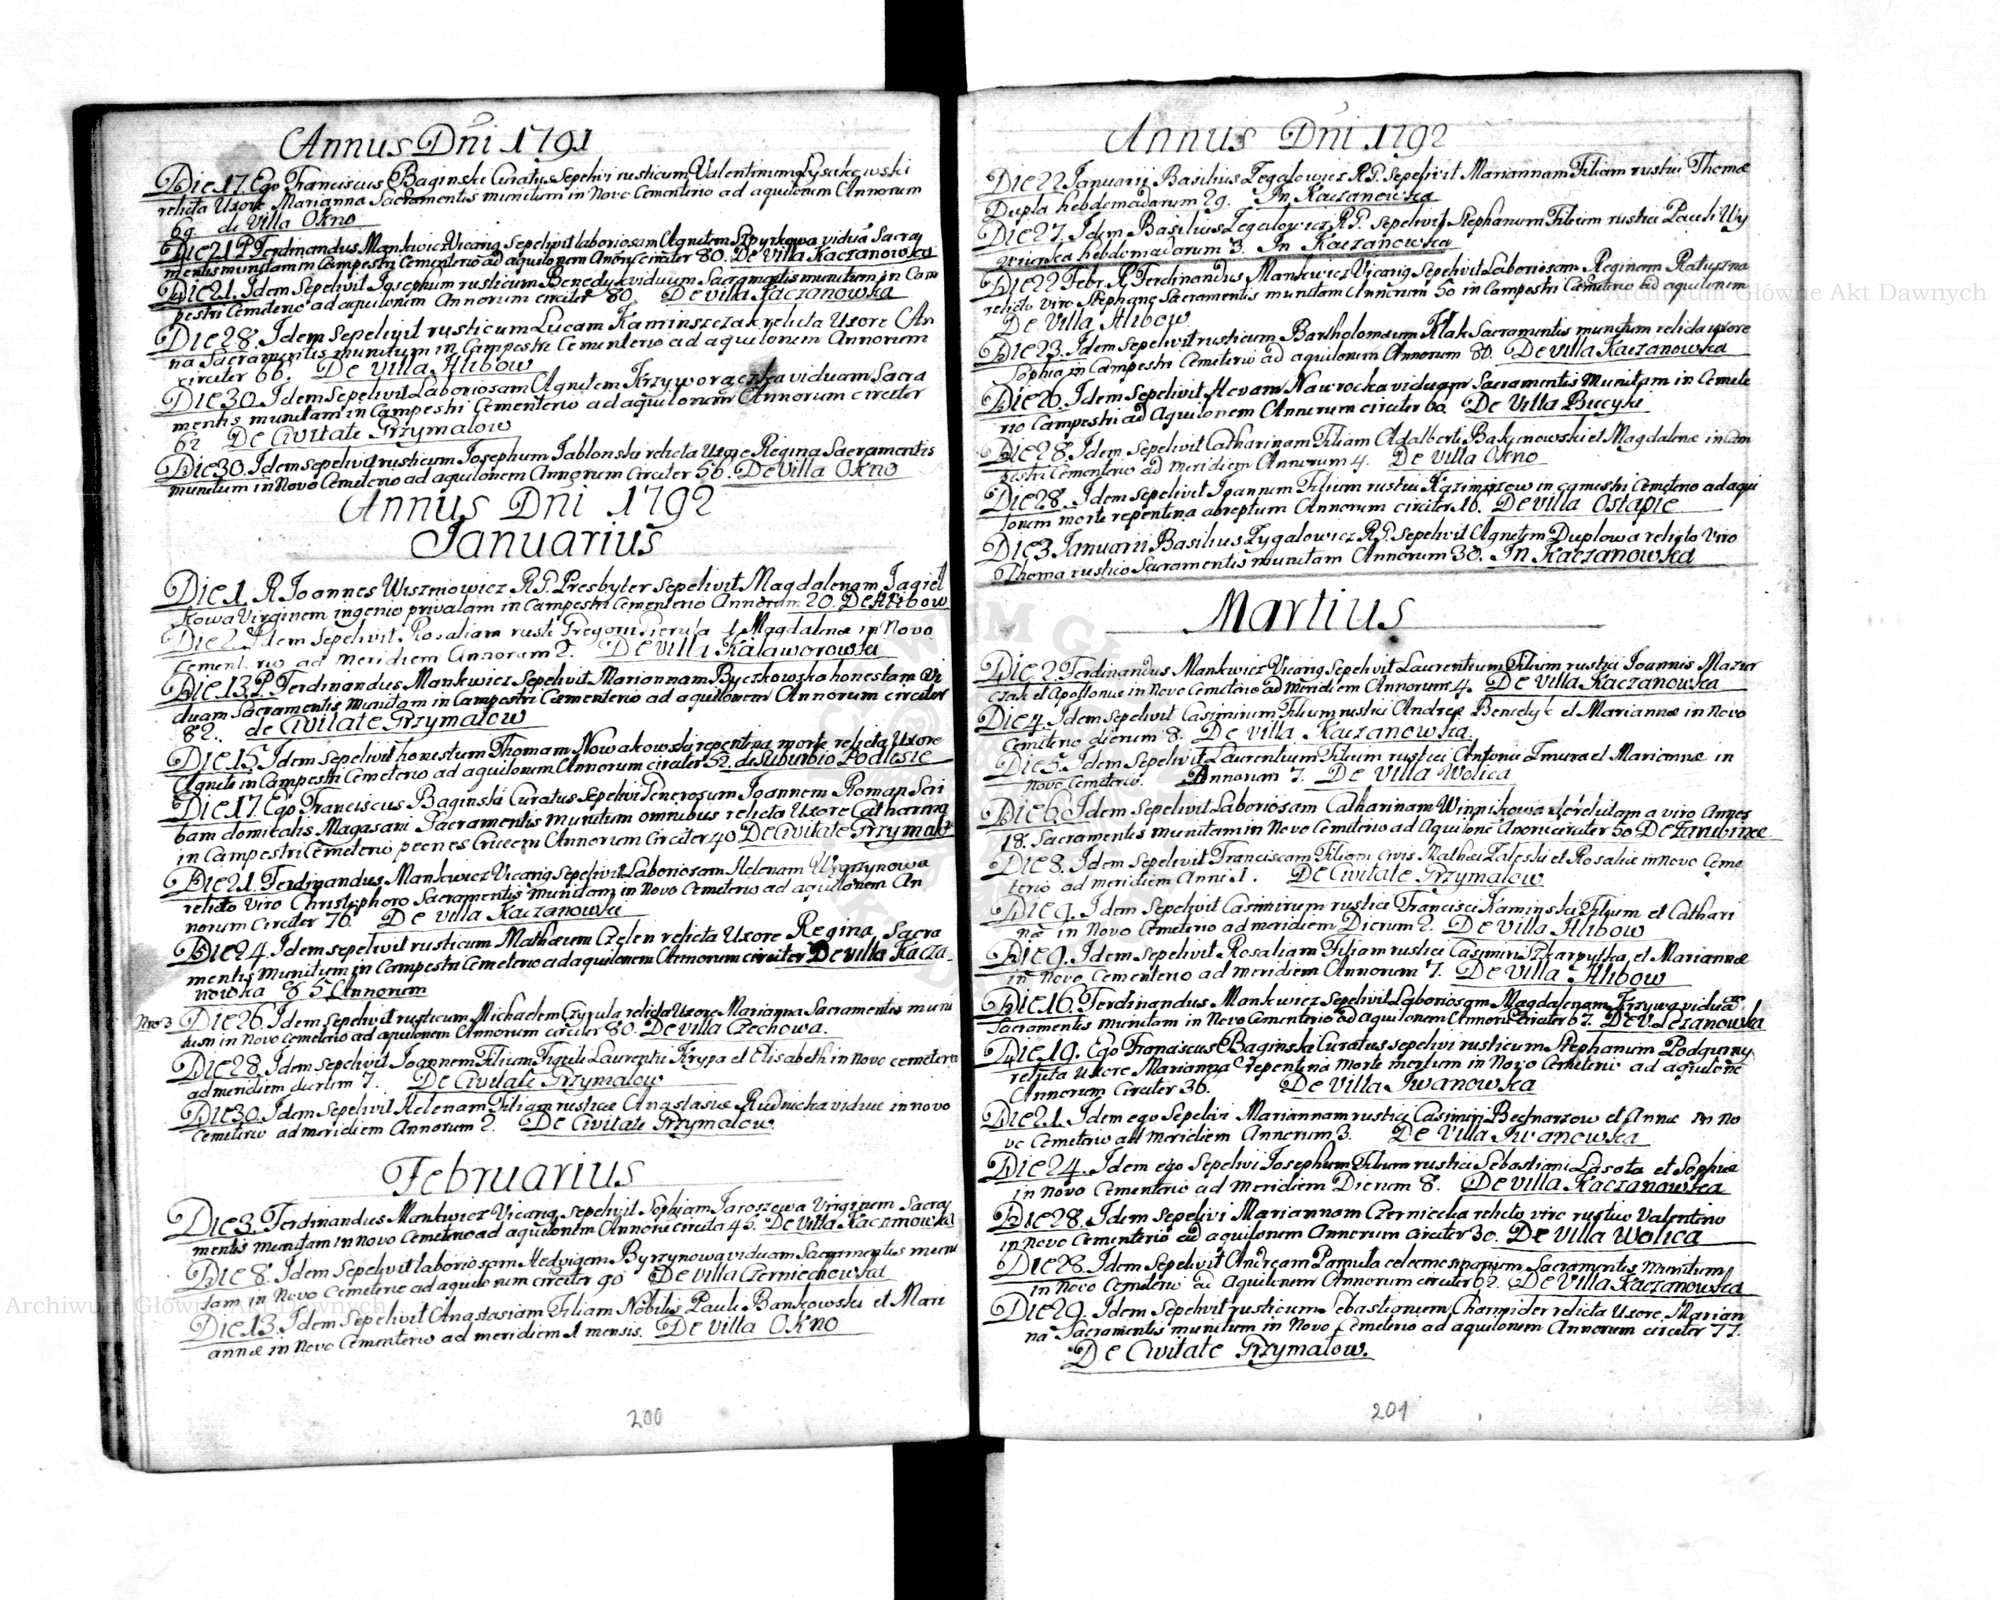 Annus Dni 1791
Die 17. Ego Franciscus Baginski Curatus Sepelivi rusticum Valentinum Lysakowski
relicta Uxore Marianna Sacramentis munitum in Novo Cementerio ad aquilonem Annorum
69. de Villa Okno
Die 21 P. Ferdinandus Mankwicz Vicarig Sepelivit laboriosam Agnetem Szpyrkowa viduā Sacra
mentis munitam in Campestri Cementerio ad aquilonem Anorū circiter 80. De Villa Kaczanowka
Die 21. Idem Sepelivit Josephum rusticum Benedyk viduum Sacramentis munitum in Cam
pestri Cemeterio ad aquilonem Annorum circiter 80 De villa Kaczanowka
Die 28. Idem Sepelivit rusticum Lucam Kaminszczak relicta Uxore An
na Sacramentis munitum in Campestri Cementerio ad aquilonem Annorum
circiter 66. De Villa Hlibow
Die 30. Idem Sepelivit Laboriosam Agnetem Krzyworączka viduam Sacra
mentis munitam in Campestri Cementerio ad aquilonem Annorum circiter
62 De Civitate Grzymalow
Die 30. Idem sepelivit rusticum Josephum Jablonski relicta Uxore Regina Sacramentis
munitum in Novo Cemeterio ad aquilonem Annorum Circiter 56. De Villa Okno
Annus Dni 1792
Januarius
Die 1. R Joannes Wiszniowicz R.G. Presbyter Sepelivit Magdalenam Jagiel
kowa Virginem ingenio privatam in Campestri Cementerio Annorum 20. De Hlibow
Die 2. Idem Sepelivit Rosaliam rusti Gregorii et Magdalenæ in Novo
Cementerio ad Meridiem Annorum 2. De Villa Kalaworowka
Die 13. P. Ferdinandus Mankwicz Sepelivit Mariannam Byczkowska honestam Vi
duam Sacramentis Munitam in Campestri Cementerio ad aquilonem Annorum circiter
82. de Civitate Grzymalow
Die 15. Idem Sepelivit honestum Thomam Nowakowski repentina morte relicta Uxore
Agnete in Campestri Cemeterio ad aquilonem Annorum circiter 52. de Suburbio Podlesie
Die 17. Ego Franciscus Baginski Curatus Sepelivi Generosum Joannem Roman Scri
bam domicalis Magasani Sacramentis munitum omnibus relicta Uxore Catharina
in Campestri Cemeterio peenes Crucem Annorum Circiter 40 De Civitate Grzymalo
Die 21. Ferdinandus Mankwicz Vicarig Sepelivit Laboriosam Helenam Wgrzynowa
relicto viro Christophoro Sacramentis munitam in Novo Cemeterio ad aquilonem An
norum Circiter 70. De Villa Kaczanowski
Die 24. Idem sepelivit rusticum Mathæum Czelen relicta Uxore Regina, Sacra
mentis Munitum in Campestri Cemeterio ad aquilonem Annorum circiter De villa Kacza
nowka 85 Annorum
Nro 3 Die 26. Idem Sepelivit rusticum Michaelem Czyzula relicta Uxore Marianna Sacramentis muni
tum in Novo Cemeterio ad aquilonem Annorum circiter 80. De villa Czechowa.
Die 28. Idem Sepelivit Joannem Filium Figuli Laurentii Krypa et Elisabeth in Novo cemeterio
ad meridiem dierum 7. De Civitate Grzymalow
Die 30. Idem Sepelivit Helenam Filiam rusticæ Anastasiæ Rudnicka viduæ in novo
Cemeterio ad meridiem Annorum 2. De Civitate Grzymalow
Februarius
Die 3. Ferdinandus Mankwicz Vicarig Sepelivit Sophiam Jaroszewa Virginem Sacra
mentis munitam in Novo Cemeterio ad aquilonem Annorū circiter 45. De Villa Kaczanowka
Die 8. Idem Sepelivit laboriosam Hedvigem Byrzynowa viduam Sacramentis muni
tam in Novo Cemeterio ad aquilonem circiter 90 De Villa Czerniechowka
Die 13. Idem Sepelivit Anastasiam Filiam Nobilis Pauli Bankowski et Mari
annæ in Novo Cementerio ad meridiem 1 mensis. De Villa Okno
200
Annus Dni 1792
Die 22 Januarii Basilius Zegalowicz R.G. Sepelivit Mariannam Filiam rustici Thomæ
Dupla hebdomadarum 29. In Kaczanowska
Die 27. Idem Basilius Zegalowicz R.G. Sepelivit Stephanum Filium rustici Pauli Wy
hebdomadarum 3. In Kaczanowka
Die 22 Febr. R. Ferdinandus Mankwicz Vicarig Sepelivit Laboriosam Reginam Ratuszna
relicto viro Stephano Sacramentis munitam Annorum 50 in Campestri Cemeterio ad aquilonem
De Villa Hlibow
Die 23. Idem Sepelivit rusticum Bartholomæum Hlak Sacramentis munitum relicta uxore
Sophia in Campestri Cemeterio ad aquilonem Annorum 80. De Villa Kaczanowka
Die 26. Idem Sepelivit Hevam Nawrocka viduam Sacramentis Munitam in Cemete
rio Campestri ad Aquilonem Annorum circiter 60. De Villa Bucyki
Die 28. Idem Sepelivit Catharinam Filiam Adalberti Bakynowski et Magdalenæ in Cam
pestri Cementerio ad Meridiem Annorum 4. De Villa Okno
Die 28. Idem Sepelivit Joannem Filium rustici Kazimirzow in campestri Cemeterio ad aqui
lonem morte repentina abreptum Annorum circiter 10. De villa Ostapie
Die 3 Januarii Basilius Zygalowicz R.G. Sepelivit Agnetem Duplowa relicto Viro
Thoma rustico Sacramentis munitam Annorum 30. In Kaczanowka
Martius
Die 2. Ferdinandus Mankwicz Vicarig Sepelivit Laurentium Filium rustici Joannis Mazur
czak et Apollonæ in Novo Cemeterio ad Meridiem Annorum 4. De Villa Kaczanowska
Die 4. Idem Sepelivit Casimirum Filium rustici Andreæ Benedyk et Mariannæ in Novo
Cemeterio dierum 8. De Villa Kaczanowska.
Die 5. Idem Sepelivit Laurentium Filium rustici Antonii Zmura et Mariannæ in
novo Cemeterio. Annorum 7. De Villa Wolica
Die 6. Idem Sepelivit Laboriosam Catharinam Winnikowa derelictam a viro Annos
18. Sacramentis munitam in Novo Cemeterio ad Aquilonē Anorū circiter 50 De Zarubince
Die 8. Idem Sepelivit Franciscam Filiam civis Mathæi Zaleski et Rosaliæ in Novo Ceme
terio ad meridiem Anni 1. De Civitate Grzymalow
Die 9. Idem Sepelivit Casimirum rustici Francisci Kaminski Filium et Cathari
næ in Novo Cemeterio ad meridiem Dierum 2. De Villa Hlibow
Die 9. Idem Sepelivit Rosaliam Filiam rustici Casimiri Szkarpytka, et Mariannæ
in Novo Cementerio ad meridiem Annorum 7. De Villa Hlibow
Die 16. Ferdinandus Mankwicz Sepelivit Laboriosam Magdalenam Krzywa viduā
Sacramentis munitam in Novo Cementerio ad aquilonem Annorū Circiter 67. De V. Lezanowka
Die 19. Ego Franciscus Baginski Curatus sepelivi rusticum Stephanum Podgurny
relicta Uxore Marianna repentina morte mertum in Novo Cemeterio ad aquilonē
Annorum Circiter 36. De Villa Iwanowka
Die 21. Idem ego Sepelivi Mariannam rustici Casimiri Bednarzow et Annæ in No
vo Cemeterio ad Meridiem Annorum 3. De Villa Iwanowka
Die 24. Idem ego Sepelivi Josephum Filium rustici Sebastiani Lasota et Sophiæ
in Novo Cementerio ad Meridiem Dierum 8. De Villa Kaczanowska
Die 28. Idem Sepelivi Mariannam Czernicelia relicto viro rustico Valentino
in Novo Cementerio ad aquilonem Annorum circiter 30. De Villa Wolica
Die 28. Idem Sepelivit Andream Pamula Sacramentis Munitum
in Novo Cemeterio ad Aquilonem Annorum circiter 62. De Villa Kaczanowska
Die 29. Idem Sepelivit rusticum Sebastianum Champider relicta Uxore Marian
na Sacramentis munitum in Novo Cemeterio ad aquilonem Annorum circiter 77.
De Civitate Grzymalow.
201
Archiwum Główne Akt Dawnych
Archiwum Główne Akt Dawnych